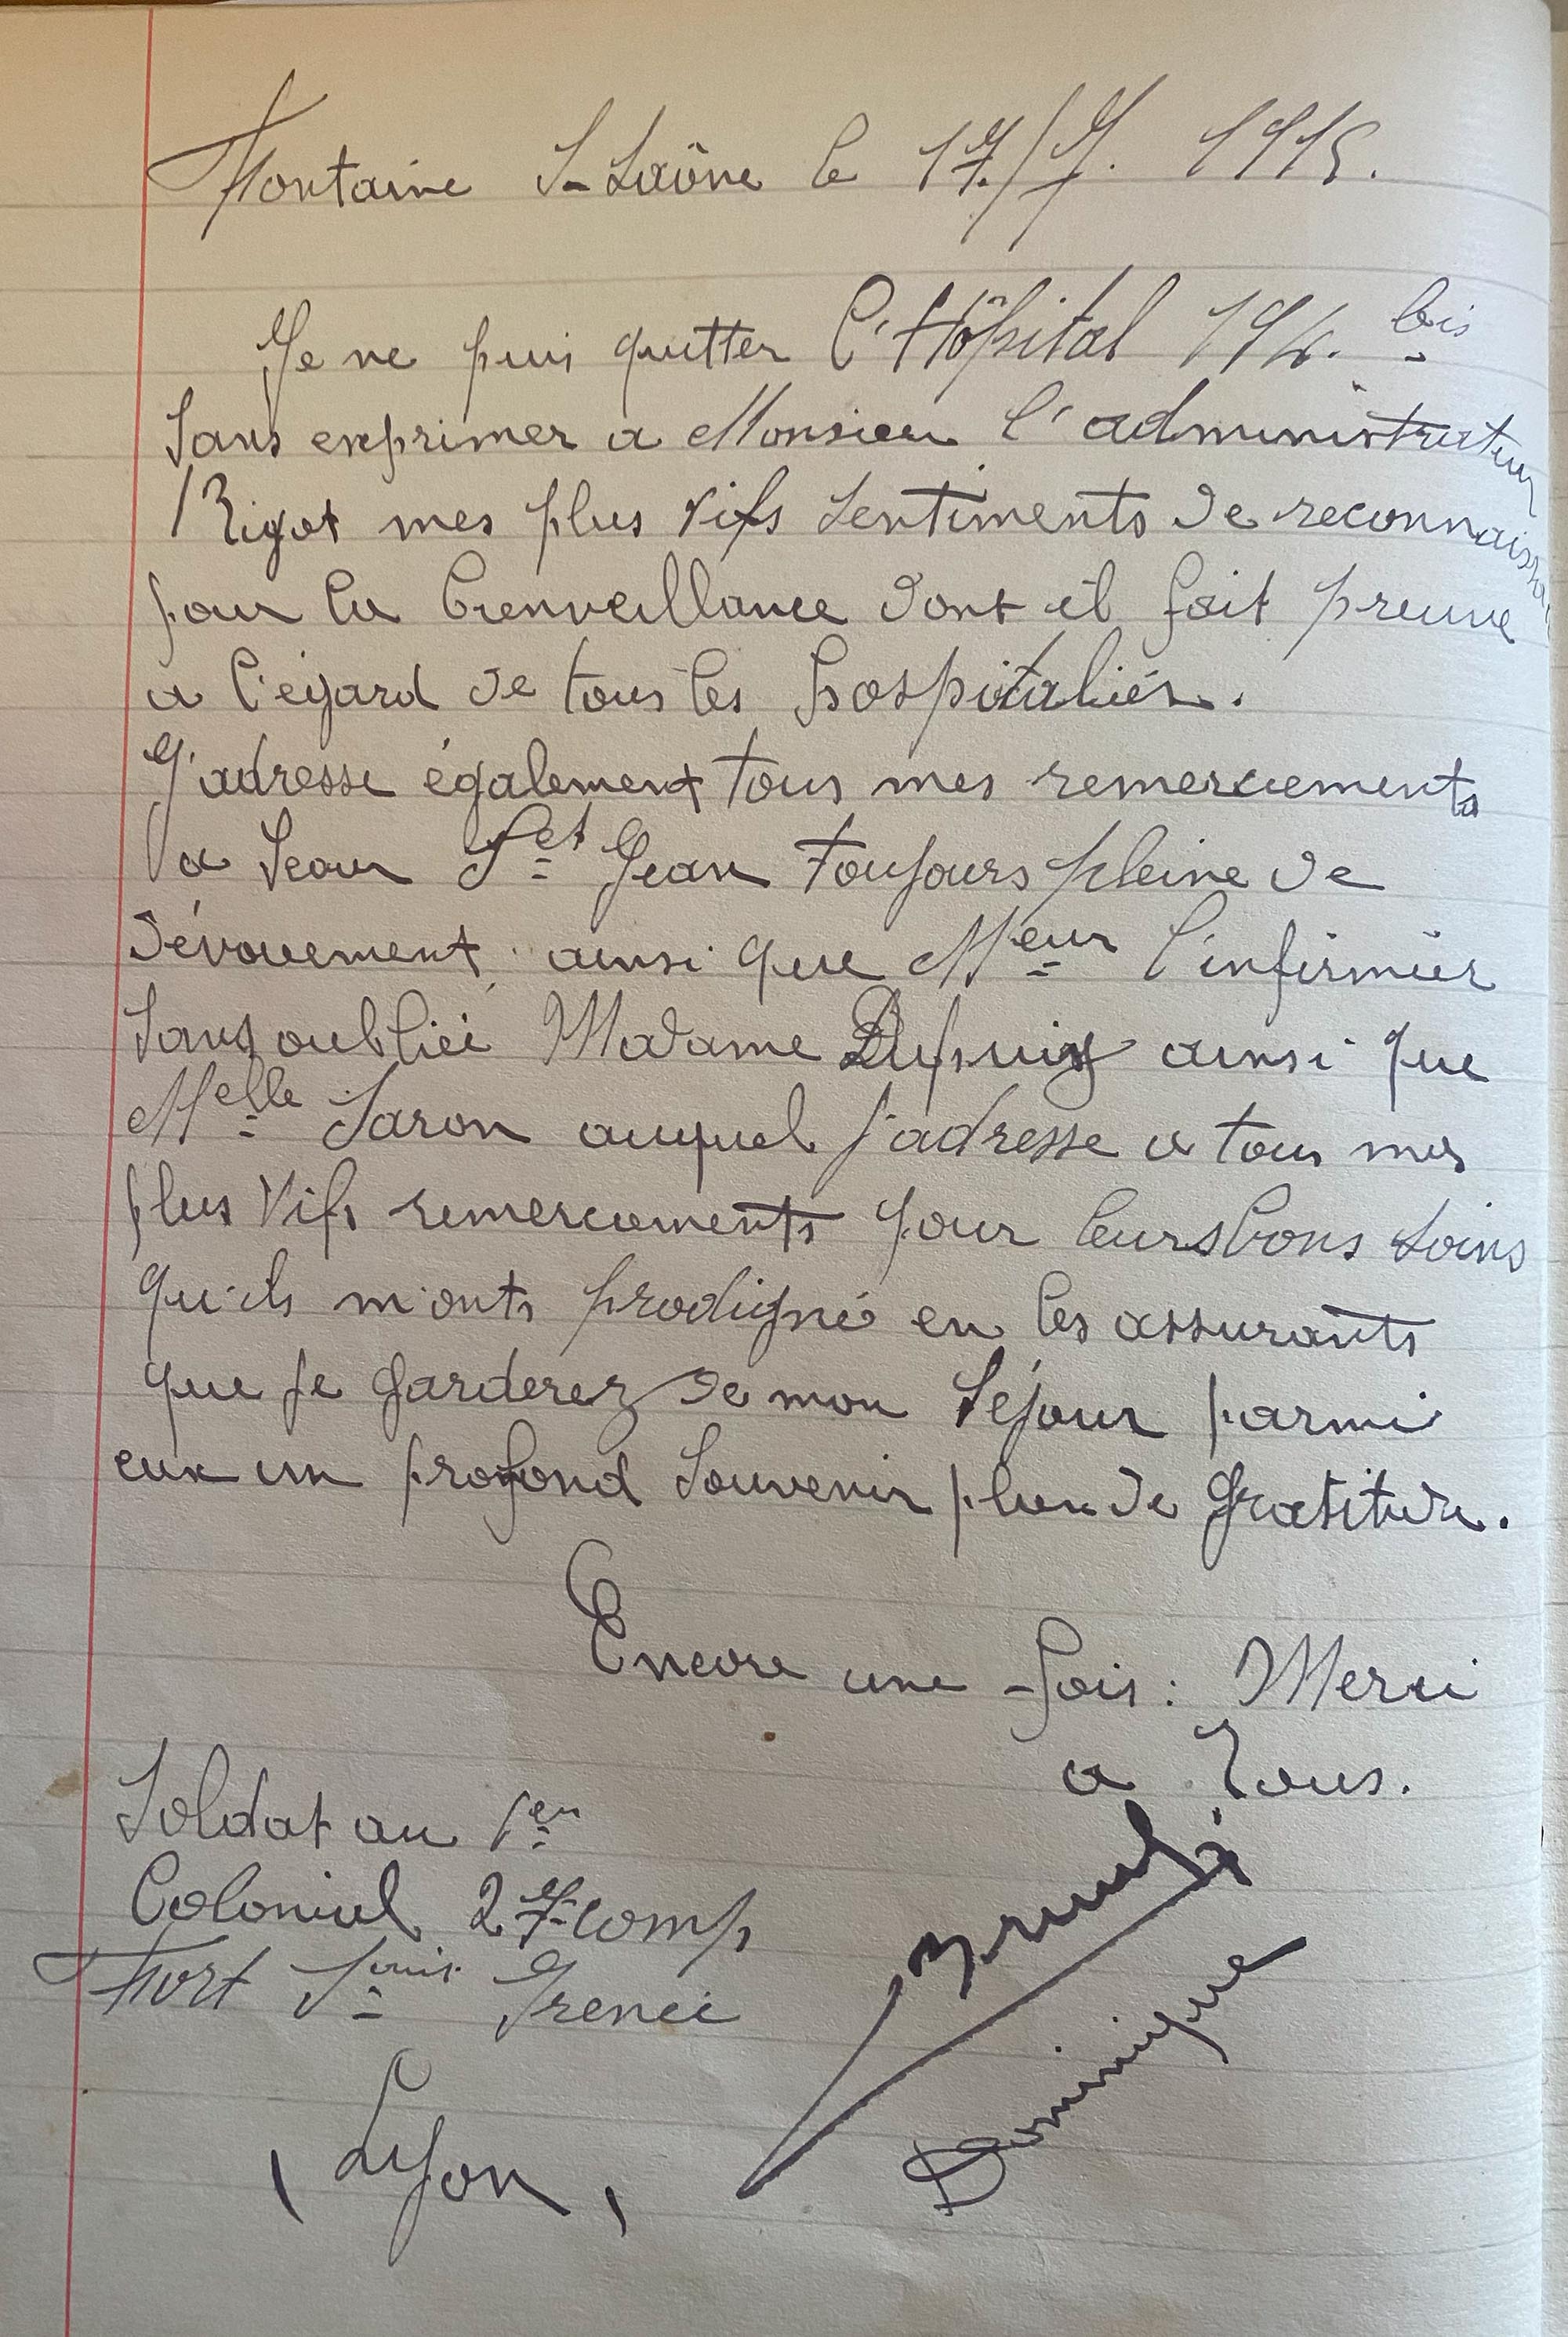 Fontaine S-Saône le 17/7. 1915.
Je ne puis quitter l'Hôpital 194. bis
sans exprimer a Monsieur l'administrateur
Rigot mes plus vifs sentiments de reconnaissance
pour la bienveillance dont il fait preuve
a l'égard de tous les hospitaliér.
J'adresse également tous mes remerciements
a Seour St Jean toujours pleine de
dévouement, ainsi que Meur l'infirmier
sans oubliéé Madame Dupuis ainsi que
Melle Saron auquel j'adresse a tous mes
plus vifs remerciements pour leurs bons soins
qu'ils m'onts prodigné en les assurants
que je garderez de mon séjour parmi
eux un profond souvenir plein de gratitude.
Encore une fois : Merci
a Tous.
Soldat au 1er
Colonial 27 comp
Fort St Irenée
(Lyon)
Dominique